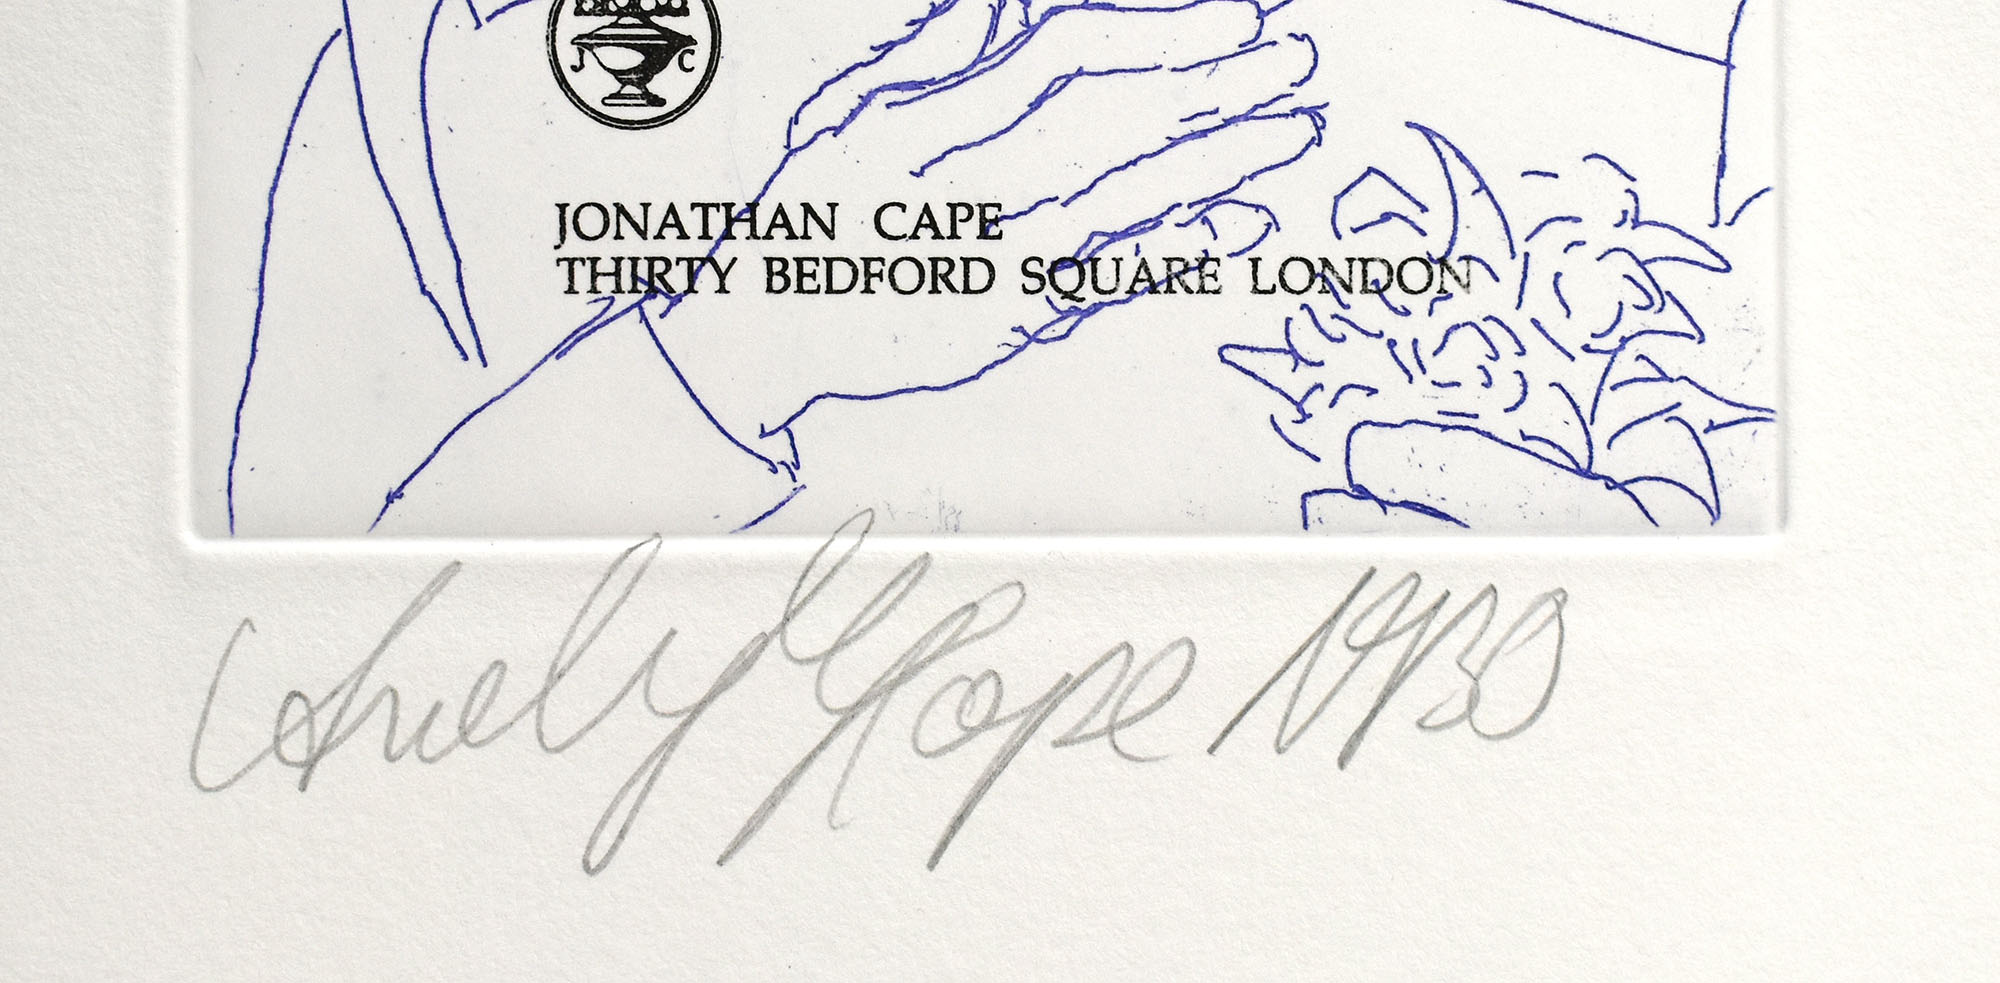 J C
JONATHAN CAPE
THIRTY BEDFORD SQUARE LONDON
Andy Hope 1930